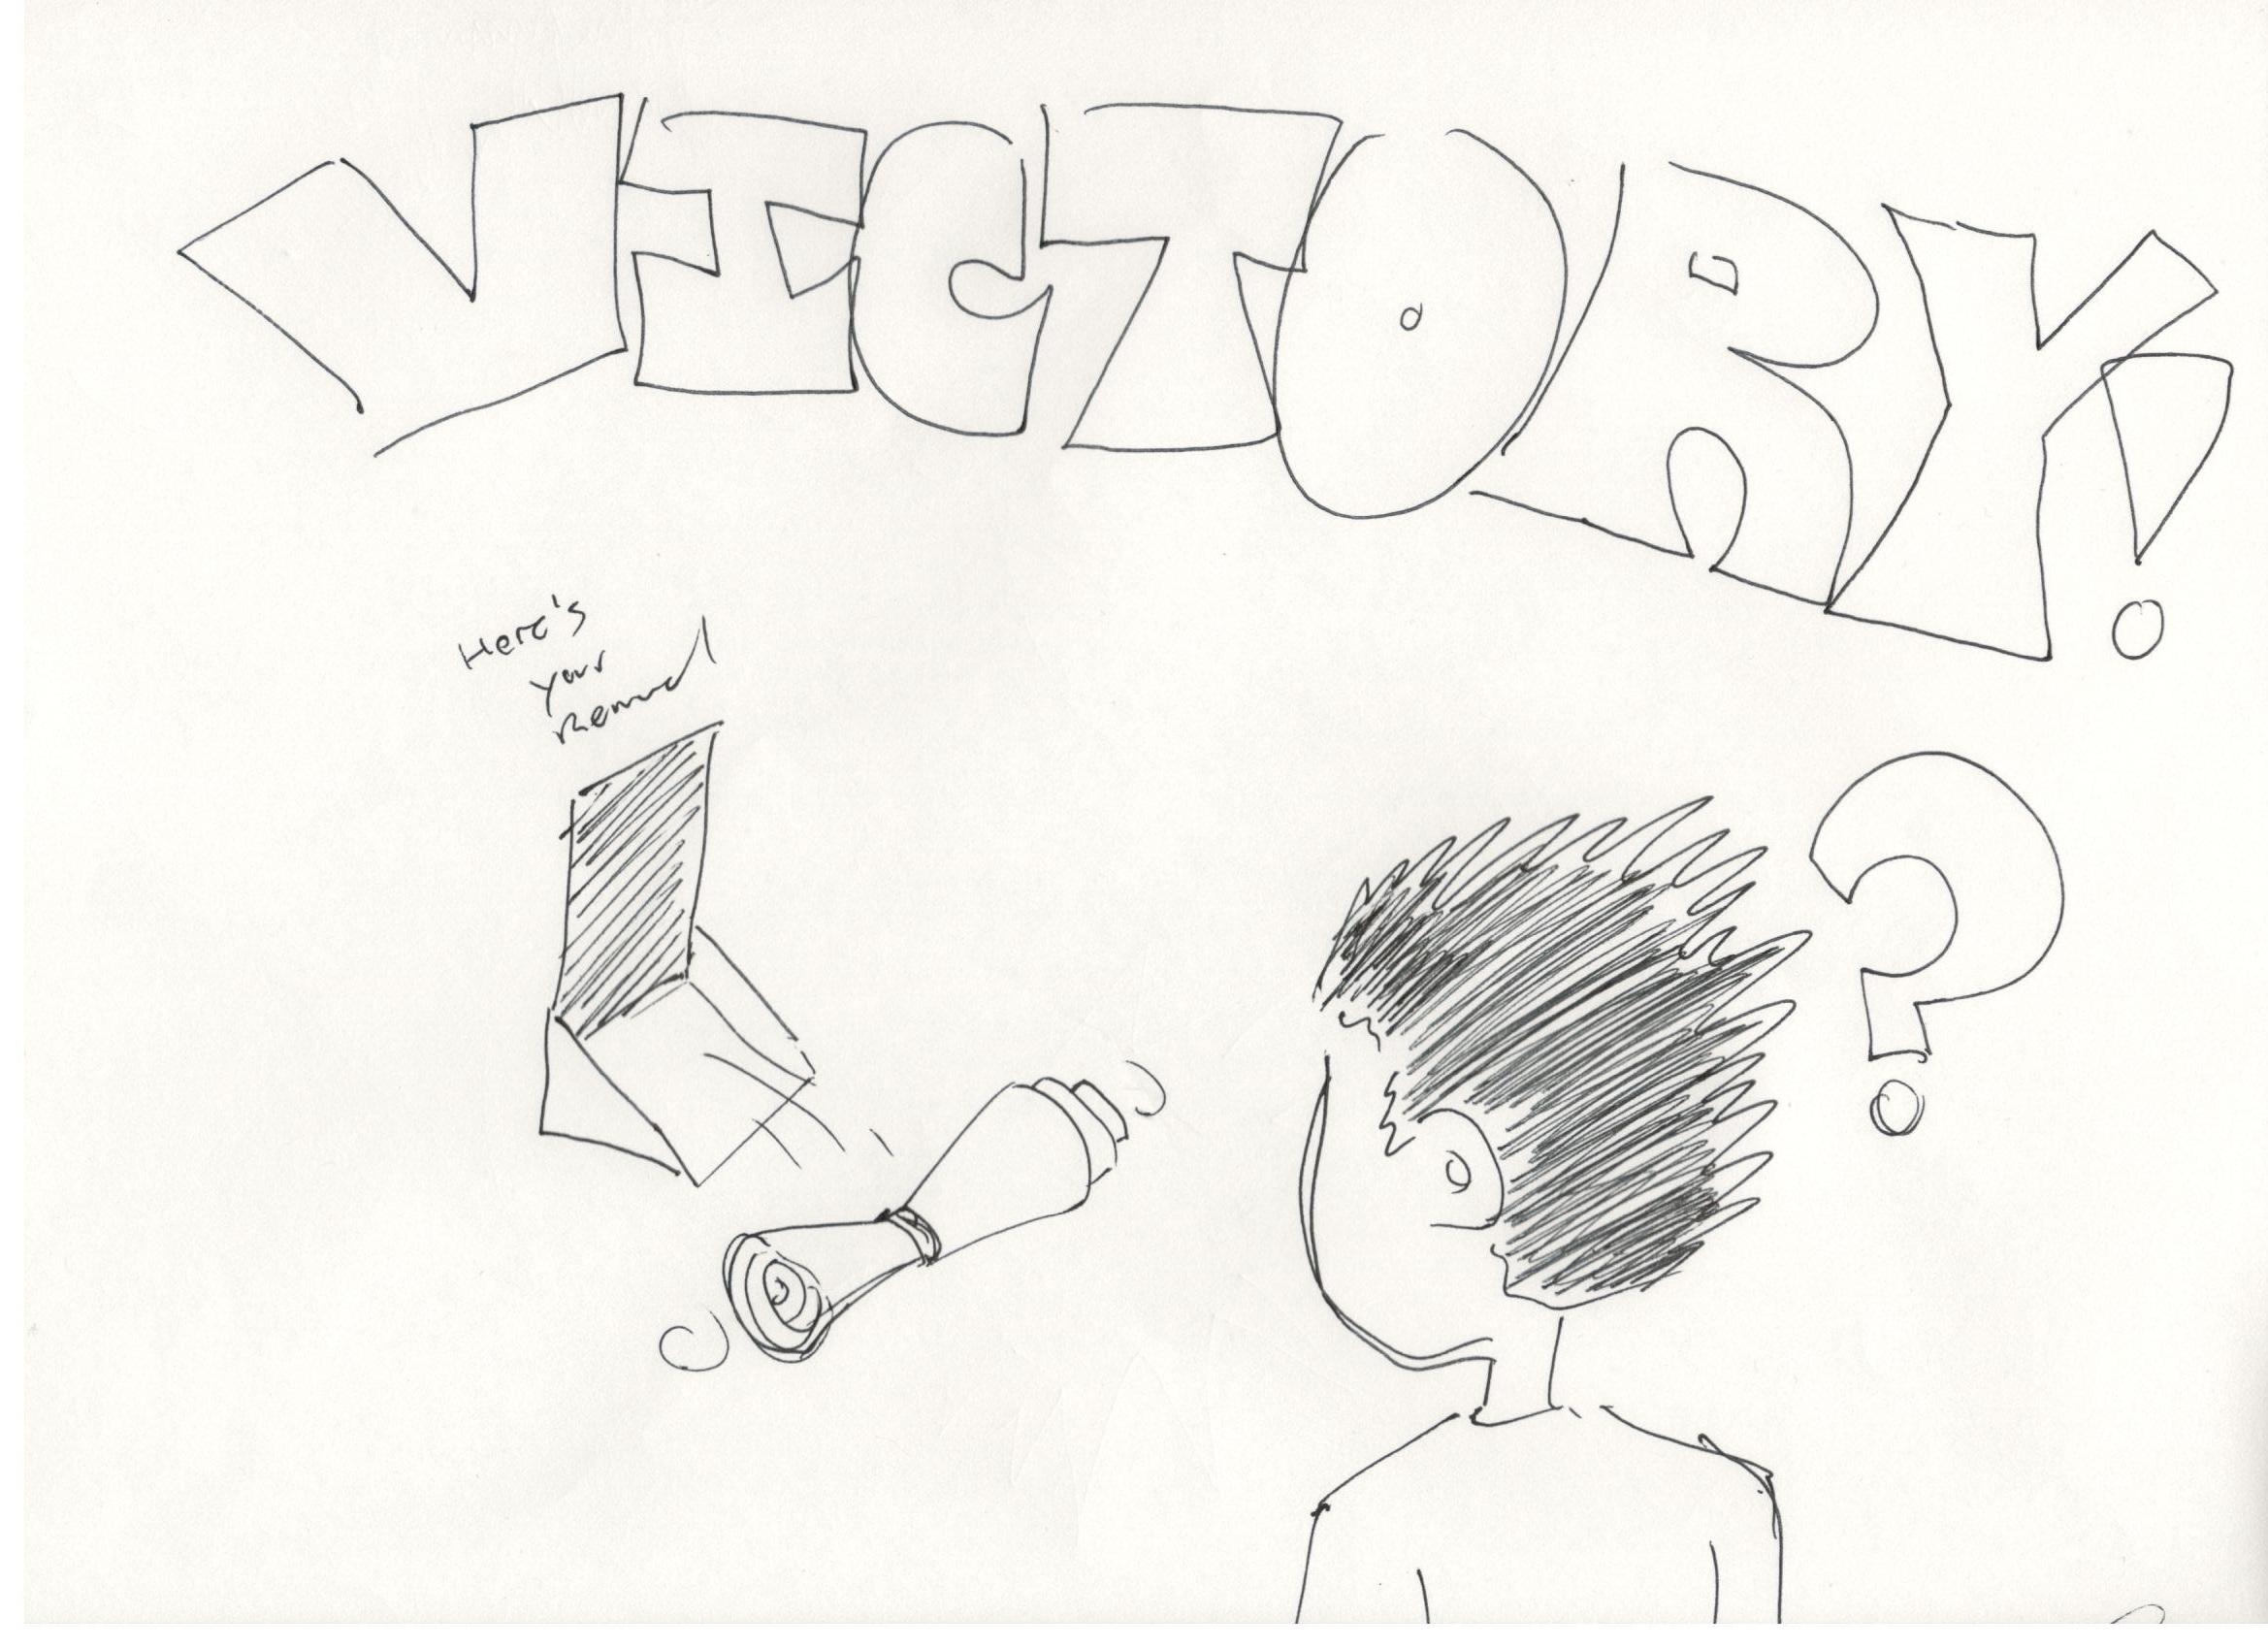 VICTORY!
Here's
your
Reward
?